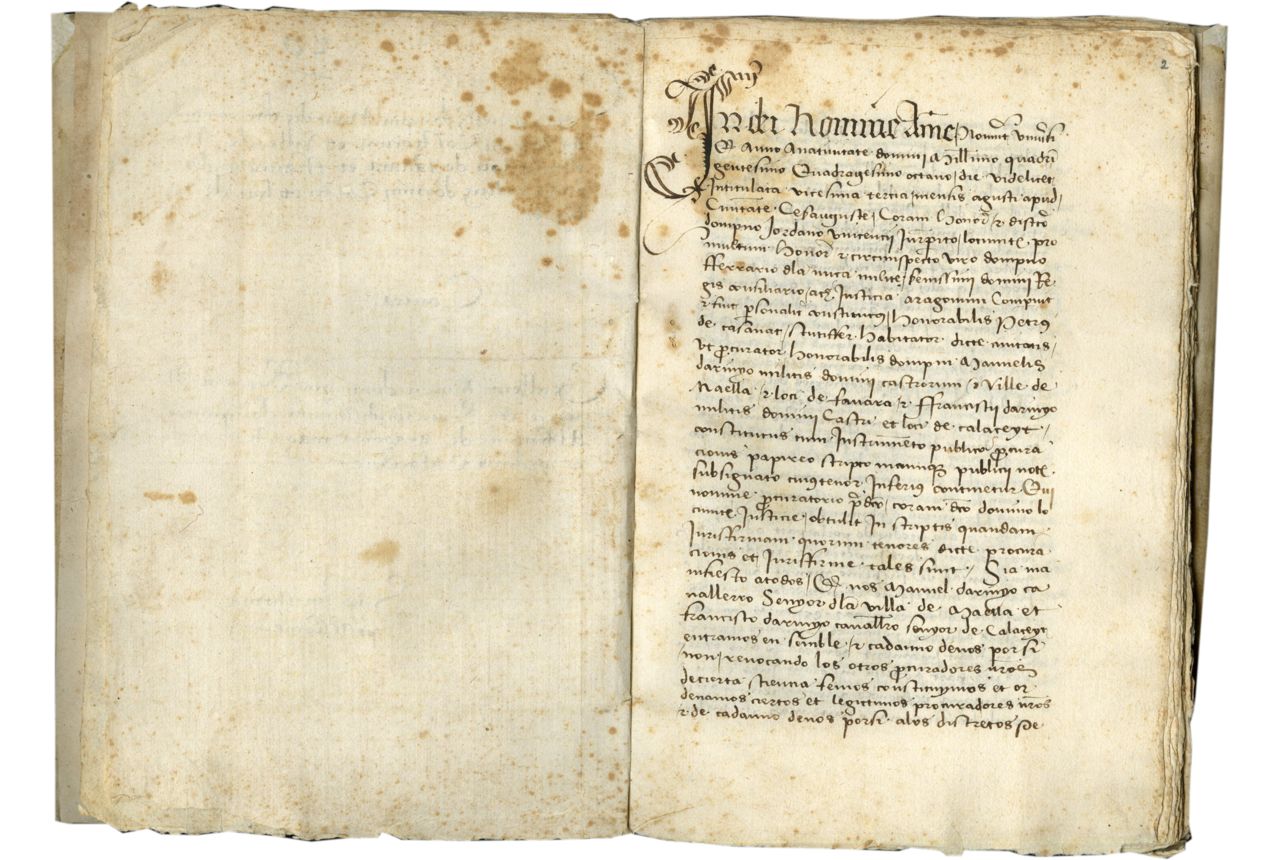 2
In dei Nomine Amē Noverīt univ̄si
Q̄ Anno Anativitate domini Millimo quadrī
gentesimo Quadragesimo octavo / die videlicet
Intitulata vicesima tercia / mensis agusti apud /
Civitatē Cesaugustē / Coram Honorl̄ & discrēto
dompno Jordano vincencii Jurispīto / locumtē. pro
multum Honorl̄ & circumspecto viro dompno
fferrario dla nuca milite / senissimi domini Re
gis consiliario / acq̄ Justicia aragonum Comput
& fuit p̄sonalit̄ constitutus / Honorabilis Petrus
de casanat / scutiffer Habitator dicte civitatis /
Ut p̄curator Honorabilis dompni Manuelis
darinyo militis domini castrorum / & ville de
Maella / & loci de favara / & ffrancisci darinyo
militis domini Castri et loci de calaceyt /
constitutus cum Instrumēto publico p̄cura
cionis papireo scripto manuq̄ publici notē
subsignato cuiustenor Inferius continetur. Qui
nomine p̄curatorio p̄dc̄o / coram dc̄o domino lo
cumtē. Justicie / obtulit In scriptis quandam
Jurisfirmam quorum tenores dictē procura
cionis et Jurisfirme tales sunt / Sia ma
nifiesto atodos / Q̄ nos Manuel darinyo ca
vallerro Senyor dla villa de Maella et
francisco darinyo cavall̄ro senyor de Calaceyt
entramos en semble / & cadauno denos por si
non / revocando los otros p̄curadores nr̄os
decierta sciencia femos constituymos et or
denamos ciertos et legitimos procuradores nr̄os
& de cadauno denos porsi alos discretos Pe